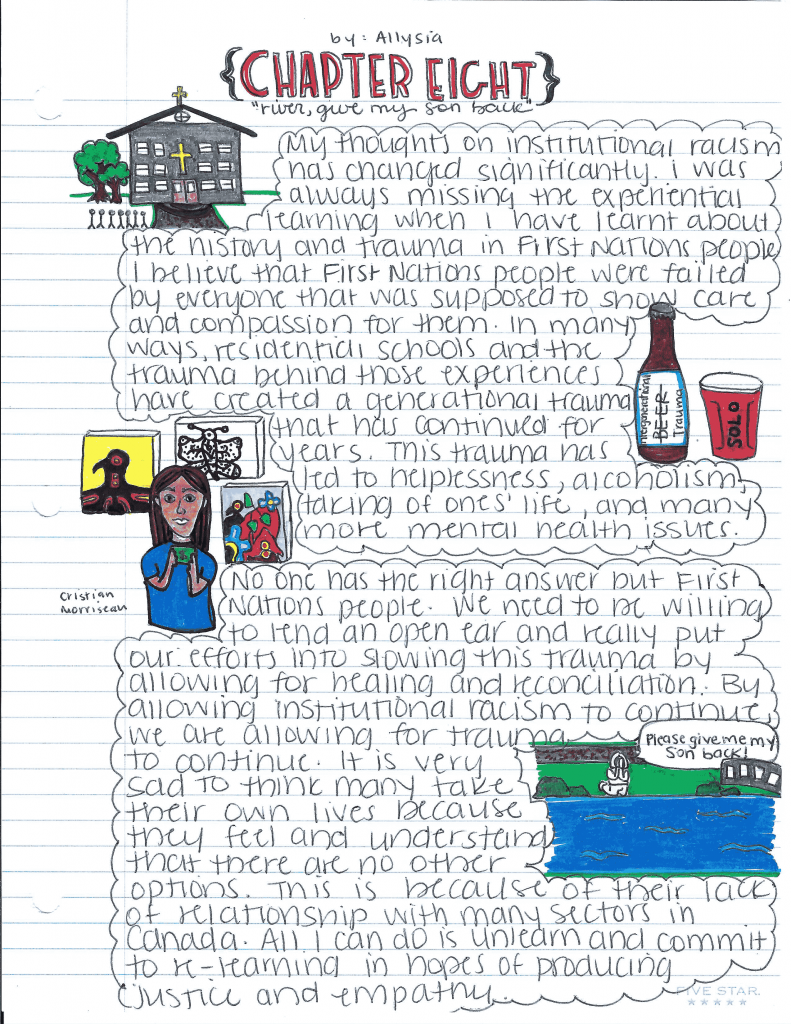 by: Allysia
{CHAPTER EIGHT}
"river, give my son back"
My thoughts on institutional racism
has changed significantly. I was
always missing the experiential
learning when I have learnt about
the history and trauma in First Nations people
I believe that First Nations people were failed
by everyone that was supposed to show care
and compassion for them. In many
ways, residential schools and the
trauma behind those experiences
have created a generational trauma
that has continued for
years. This trauma has
led to helplessness, alcoholism,
taking of ones' life, and many
more mental health issues.
Intergenerational
BEER
Trauma
SOLO
Cristian
Morriseau
No one has the right answer but First
Nations people. We need to be willing
to lend an open ear and really put
our efforts into slowing this trauma by
allowing for healing and reconciliation. By
allowing institutional racism to continue,
we are allowing for trauma
to continue. It is very
sad to think many take
their own lives because
they feel and understand
that there are no other
options. This is because of their lack
of relationship with many sectors in
Canada. All I can do is unlearn and commit
to re-learning in hopes of producing
justice and empathy.
Please give me my
son back!
FIVE STAR.